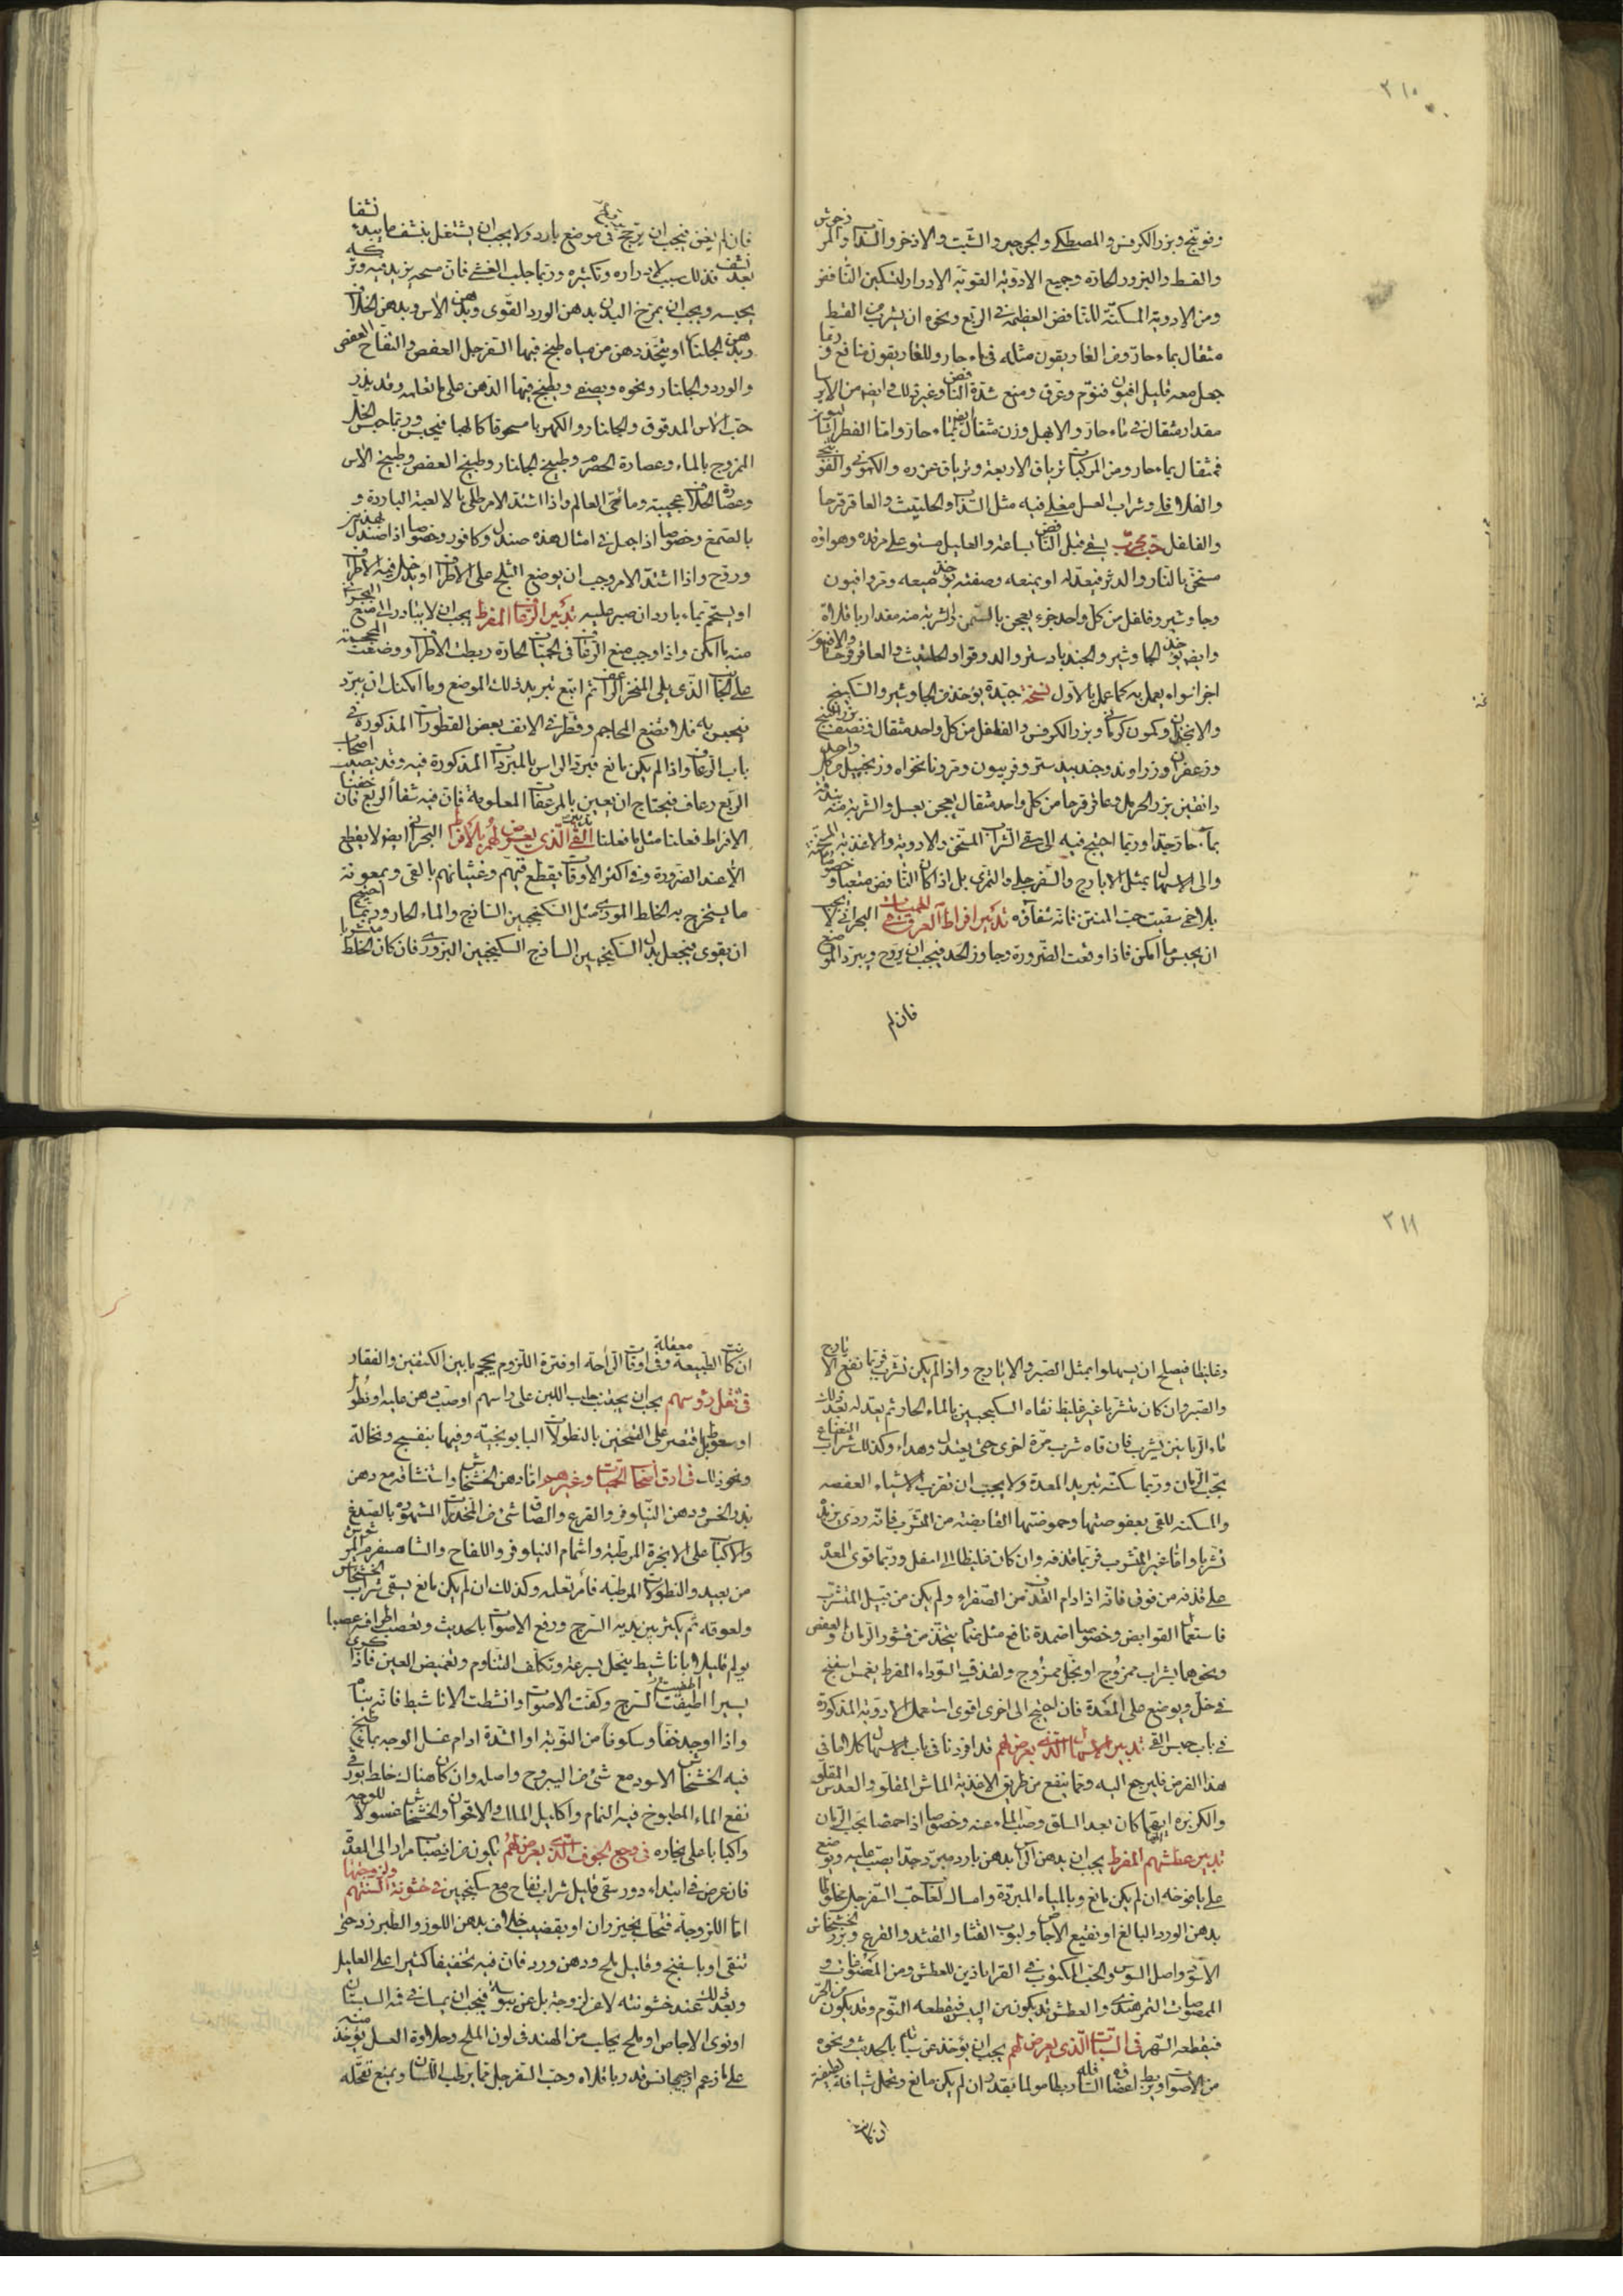 ٣١٠
وفوتنج وبزر الكرفس والمصطكى والجرجير والشبت والاذخر والسذاب والمرزنجوش
والقسط والبزور الحارة وجميع الادوية القوية الادرار لتسكين النافض
ومن الادوية المسكنة للنافض العظيمة فى الربع ونحوه ان يشرب من القسط
مثقال بماء حار ومن الغاريقون مثله فى ماء حار وللغاريقون منافع وربما
جعل معه قليل افيون فنوم وعرق ومنع شدة النافض وغير ذلك وايضا من الايرسا
مقدار مثقال فى ماء حار والابهل وزن مثقال ايضا بماء حار واما الفطراساليون
فمثقال بماء حار ومن المركبات ترياق الاربعة وترياق عزره والكمونى والفوتنجى
والفلافلى وشراب العسل مغلى فيه مثل السذاب والحلتيت والعاقرقرحا
والفلفل حب مجرب يسقى قبل النافض بساعة والعليل مستو على مرقده وهواؤه
مسخن بالنار والدثر فيعدله او يمنعه وصفته يؤخذ ميعه ومر وافيون
وجاوشير وفلفل من كل واحد جزء يعجن بالسمن والشربة منه مقدار باقلاة
وايضا يؤخذ الجاوشير والجندبادستر والدوقو والحلتيت والعاقرقرحا والافيون
اجزا سواء يعمل به كما عمل بالاول نسخة جيدة يؤخذ من الجاوشير والسكبينج
والانجدان وكمون كرمانى وبزر الكرفس والفلفل من كل واحد مثقال ونصف بزر البنج
وزعفران وزراوند وجندبيدستر وفربيون ومر ونانخواه وزنجبيل من كل واحد
دانقين بزر الحرمل وعاقرقرحا من كل واحد مثقال يعجن بعسل والشربة منه بندقة
بماء حار جدا وربما احتيج فيه الى سقى الشراب المسخن والادوية والاغذية المسخنة
والى الاسهال بمثل الايارج والسفرجلى والتمرى بل اذا كان النافض متعبا وخصوصا
بلا حمى سقيت حب المنتن فانه شفاؤه تدبير افراط العرق فى الحميات البحرانى لا يجب
ان يحبس ما امكن فاذا وقعت الضرورة وجاوز الحد فيجب ان يروح ويبرد الموضع
فان لم
فان لم يغن فيجب ان يروح فى موضع بارد ولا يجب ان يشتغل بنشف ما يبديه نشفا
بعد نشف فذلك سبب لادراره وتكثيره وربما جلب الغشى فان مسحه يزيد فيه وتركه
يحبسه ويجب ان يمرخ البدن بدهن الورد القوى وبدهن الآس وبدهن الخلاف
وبدهن الجلنار او يتخذ دهن من مياه طبخ فيها السفرجل العفص والتفاح العفص
والورد والجلنار ونحوه ويصفى ويطبخ فيها الدهن على ما تعلمه وقد يذر
حب الآس المدقوق والجلنار والكهربا مسحوقا كالهبا فيحبس وربما حبس الخل
الممزوج بالماء وعصارة الحصرم وطبيخ الجلنار وطبيخ العفص وطبيخ الآس
وعصارة الخلاف عجيبة وماء حى العالم واذا اشتد الامر طلى بالالعبة الباردة و
بالصمغ وخصوصا اذا جعل فى امثال هذه صندل وكافور وخصوصا اذا صندل بهذين
وروح واذا اشتد الامر وجب ان يوضع الثلج على الاطراف او يدخل فيه الاطراف
او يستحم بماء بارد ان صبر عليه تدبير الرعاف المفرط يجب ان لا يبادر الى منع البحرانى
منه ما امكن واذا وجب منع الرعاف فى الحميات الحارة ربطت الاطراف ووضعت المحجمة
على الجانب الذى يلى المنخر الراعف ثم اتبع تبريد ذلك الموضع وما امكنك ان يبرد
فيحبس به فلا تضع المحاجم وقطر فى الانف بعض القطورات المذكورة فى
باب الرعاف واذا لم يكن مانع فبرد الراس بالمبردات المذكورة فيه وقد يصيب اصحاب
الربع رعاف فيحتاج ان يعين بالمرعفات المعلومة فان فيه شفاء الربع فان خفنا
الافراط فعلنا مثل ما فعلنا تدبير القى الذى يعرض لهم بالافراط البحرانى ايضا لا يقطع
الا عند الضرورة وفى اكثر الاوقات يقطع قيئهم وغثيانهم بالقى وبمعونة
ما يستخرج به الخلط الموذى مثل السكنجبين الساذج والماء الحار وربما احتيج
ان يقوى فيجعل بدل السكنجبين الساذج السكنجبين البزورى فان كان الخلط متشربا
٣١١
وغليظا فيصلح ان يسهلوا بمثل الصبر والايارج واذا لم يكن تشرب فربما نفع الايارج
والصبر وان كان متشربا غير غليظ نقاه السكنجبين بالماء الحار ثم يعدله بعد ذلك
ماء الرمانين يشرب فان قاه شرب مرة اخرى حتى يعتدل ويهداء وكذلك شراب النعناع
بحب الرمان وربما سكنه تبريد المعدة ولا يجب ان تقرب الاشياء العفصة
والمسكنة للقى بعفوصتها وحموضتها القابضة من المتشرب فانه ردى يزيد
تشربا واما غير المتشرب فربما قذفه وان كان غليظا الى اسفل وربما قوى المعدة
على قذفه من فوق فانه اذا دام القذف من الصفراء ولم يكن من قبيل المتشرب
فاستعمال القوابض وخصوصا اضمدة نافع مثل ضماد يتخذ من قشور الرمان والعفص
ونحوهما بشراب ممزوج او بخل ممزوج ولقذف السوداء المفرط يغمس اسفنج
فى خل ويوضع على المعدة فان احتيج الى اخرى اقوى استعمل الادوية المذكورة
فى باب حبس القى تدبير الاسهال الذى يعرض لهم قد افردنا فى باب الاسهال كلاما فى
هذا الغرض فليرجع اليه ومما ينفع من طريق الاغذية الماش المقلو والعدس المقلو
والكزبره ايهما كان بعد السلق وصب الماء عنه وخصوصا اذا حمضا بحب الرمان
تدبير عطشهم المفرط يجب ان يدهن الراس بدهن بارد مبرد جدا يصب عليه ويوضع
على يافوخه ان لم يكن مانع وبالمياه المبردة وامساك لعاب حب السفرجل مخلوطا
بدهن الورد البالغ او نقيع الاجاص ولبوب القثا والقثد والقرع وبزر الخشخاش
الاسود واصل السوس والحب المكتوب فى القراباذين للعطش ومن
الممصوصات التمر هندى والعطش قد يكون من اليبس فيقطعه النوم وقد يكون من الحر
فيقطعه السهر فى السبات الذى يعرض لهم يجب ان يؤخذ عن سباتهم بالحديث ونحوه
من الاصوات ويربط اعضاؤه السافله ربطا مولما بقدر ان لم يكن مانع وتحمل شيافة لطيفة
ان كانت
ان كانت الطبيعة معتقلة وفى اوقات الراحة او فترة اللزوم يحجم ما بين الكتفين والفقار
فى ثقل رؤسهم يجب ان يجتنب حلب اللبن على راسهم او صب دهن عليه او نطول
او سعوط بل اقتصر على التضميد بالنطولات البابونجية وفيها بنفسج ونخالة
ونحو ذلك فى ارق اصحاب الحميات وغيرهم اما دهن الخشخاش واستنشاقه مع دهن
بزر الخس ودهن النيلوفر والقرع والصاق شئ من المخدرات المشهورة بالصدغ
والاكباب على الابخرة المرطبة واشمام النيلوفر واللفاح والشاهسفرم
من بعيد والنطولات المرطبة فامر تعلمه وكذلك ان لم يكن مانع يسقى شراب الخشخاش
ولعوقه ثم يكثر بين يديه السرج ورفع الاصوات بالحديث وتعصب اطرافه عصبا
يولم قليلا باناشيط ينحل بسرعة وتكلف التناوم وتغميض العين فاذا كرى
يسيرا اطفيت السرج وكفت الاصوات وانشطت الاناشيط فانه ينام
واذا وجد خفا وسكونا من النوبة او الشدة ادام غسل الوجه بماء طبخ
فيه الخشخاش الاسود مع شئ من اليبروح واصله وان كان هناك خلط بورقى
نفع الماء المطبوخ فيه النمام واكليل الملك والاقحوان والخشخاش غسولا للوجه
واكبابا على بخاره فى وجع الجوف الذى يعرض لهم يكون من انصباب مرار الى المعدة
فان عرض فى ابتداء دور سقى قليل شراب تفاح مع سكنجبين فى خشونة السنتهم ولزوجتها
اما اللزوجة فتحك بخيزران او بقضيب خلاف بدهن اللوز والطبرزد حتى
تنقى او باسفنج وقليل ملح ودهن ورد فان فيه تخفيفا كثيرا على العليل
وبعد ذلك عند خشونته لا عن لزوجة بل عن يبوسة فيجب ان يمسك فى فمه السبستان
او نوى الاجاص او ملح يجلب من الهند فى لون الملح وحلاوة العسل يؤخذ منه
على ما زعم ارجيجانس قدر باقلاه وحب السفرجل مما يرطب اللسان ويمنع تقحله